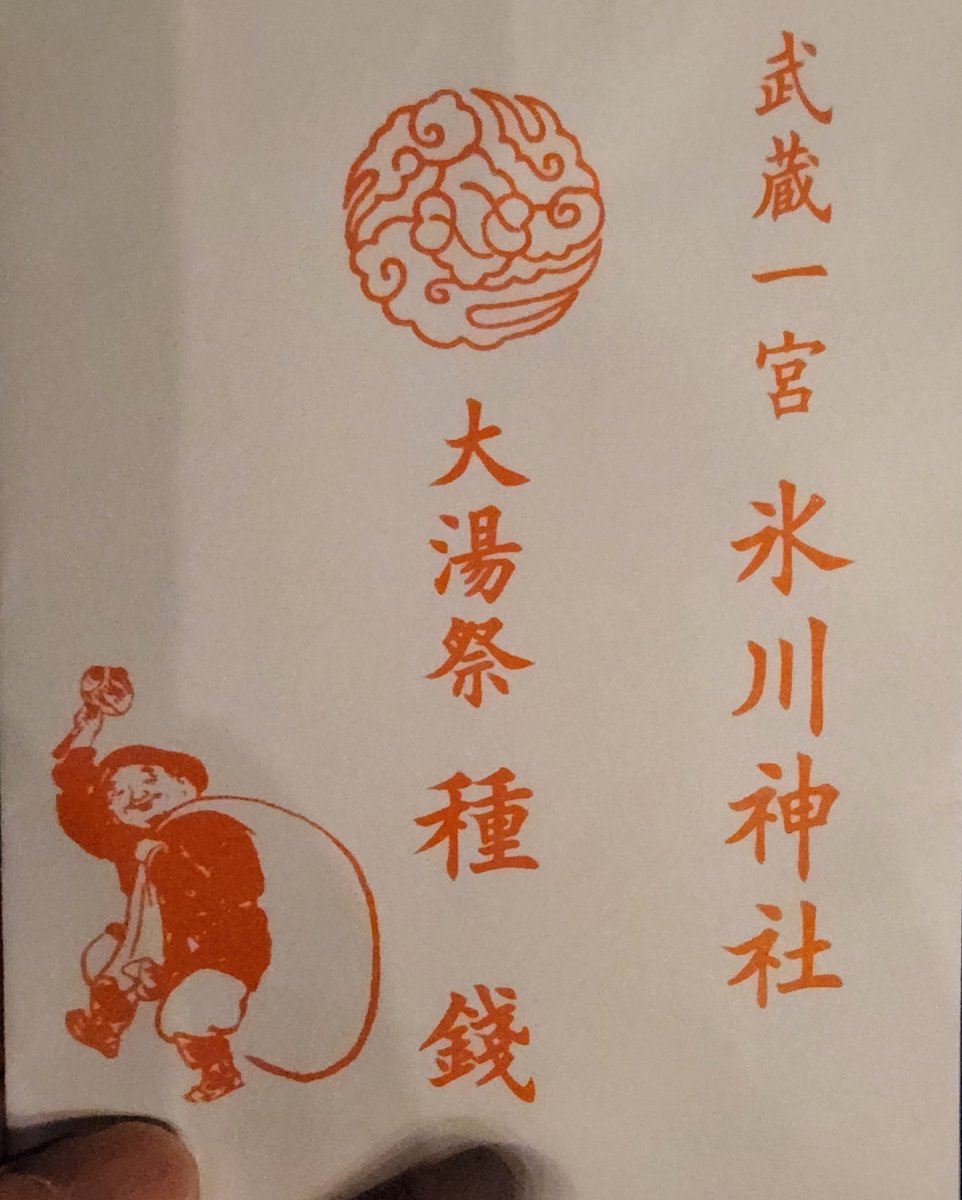 武蔵一宮 氷川神社
大湯祭 種 錢